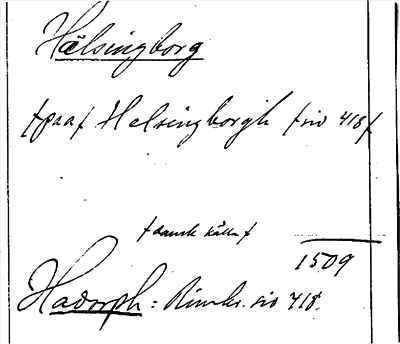 Hälsingborg
/paa/ Helsingborgh /sid 418/
/dansk källa/
1509
Hadorph: Rimkr. sid 418.